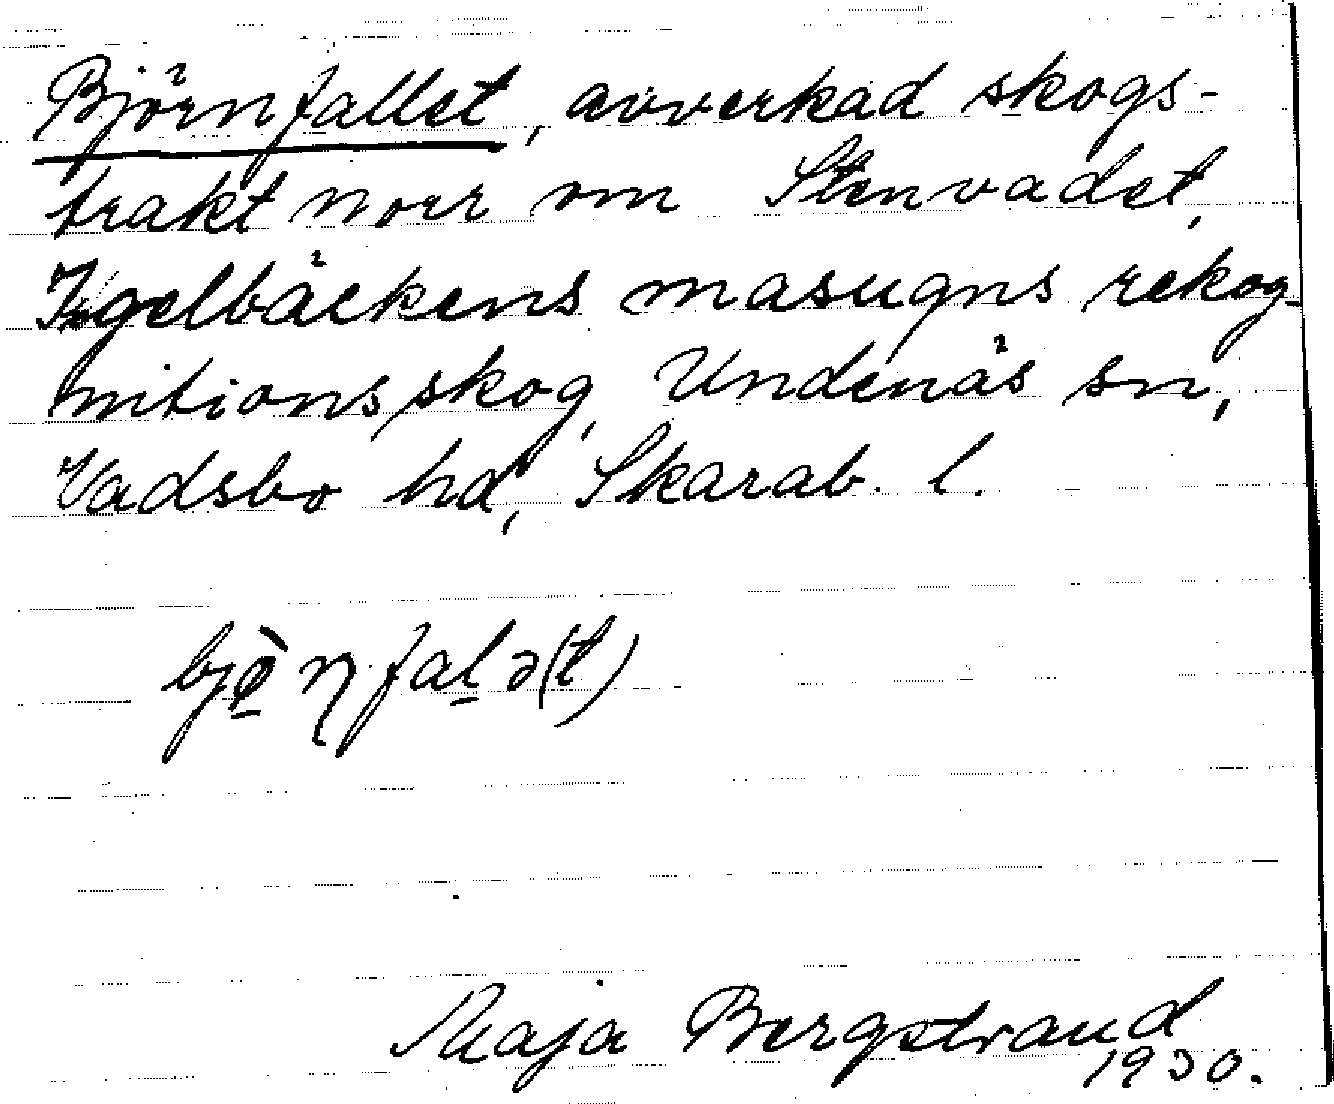 Björnfallet, avverkad skogs-
trakt norr om Stenvadet,
Igelbäckens masugns rekog-
nitionsskog, Undenäs sn,
Vadsbo hd, Skarab. l.
bjö̀ṇfalə(t)
Maja Bergstrand
1930.